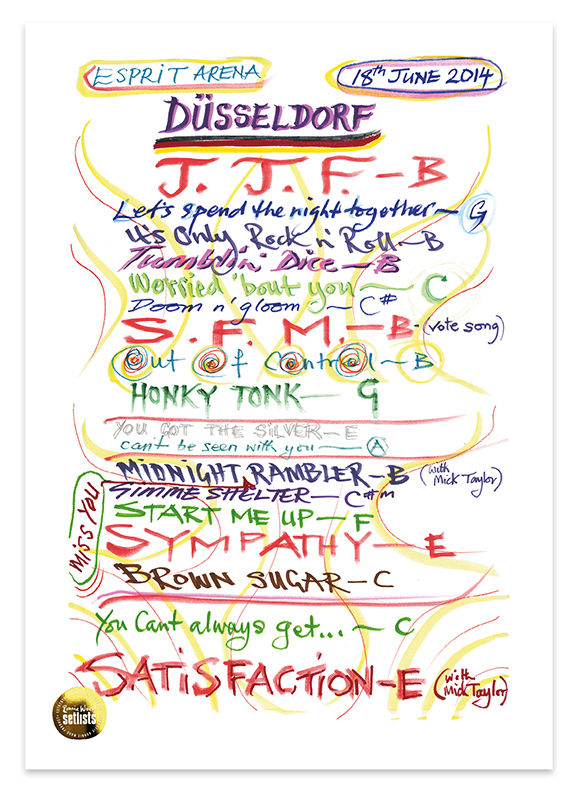 ESPRIT ARENA
18th JUNE 2014
DÜSSELDORF
J. J. F. - B
Let's spend the night together - G
it's Only Rock n' Roll - B
Tumblin' Dice - B
Worried 'bout you - C
Doom n' gloom - C#
S. F. M. - B - (vote song)
Out Of Control - B
HONKY TONK - G
YOU GOT THE SILVER - E
can't be seen with you - A
MIDNIGHT RAMBLER - B (with Mick Taylor)
GIMME SHELTER - C#m
MISS YOU
START ME UP - F
SYMPATHY - E
BROWN SUGAR - C
You Cant always get... - C
SATiSFACTiON - E (with Mick Taylor)
Ronnie Wood
setlists